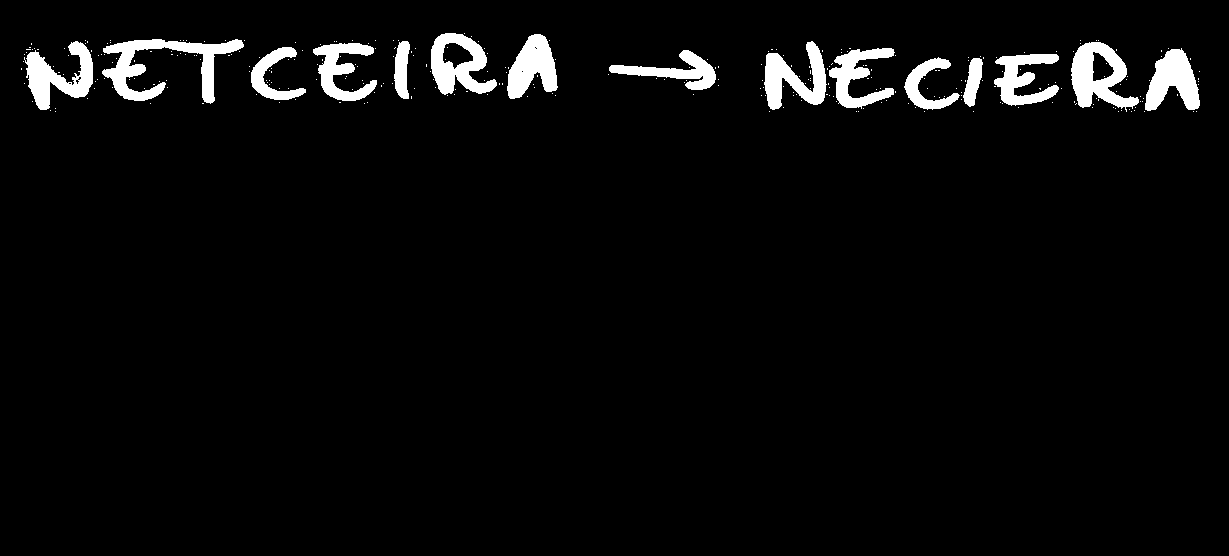 NETCEIRA → NECIERA